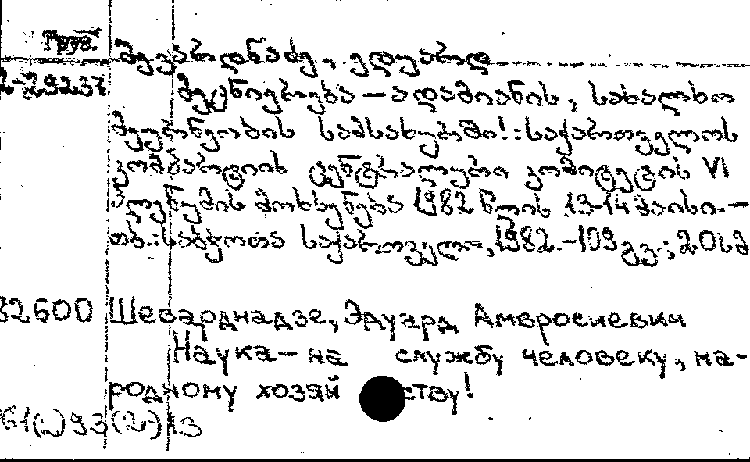 Груз.
შევარდნაძე, ედუარდ
2-29237
მეცნიერება — ადამიანის, სახალხო
მეურნეობის სამსახურში!: საქართველოს
კომპარტიის ცენტრალური კომიტეტის VI
პლენუმის მოხსენება 1982 წლის 13-14 მაისი.—
თბ.: საბჭოთა საქართველო, 1982.-109 გვ.; 20სმ
32600 Шеварднадзе, Эдуард Амвросиевич
Наука — на службу человеку, на-
родному хозяй ству!